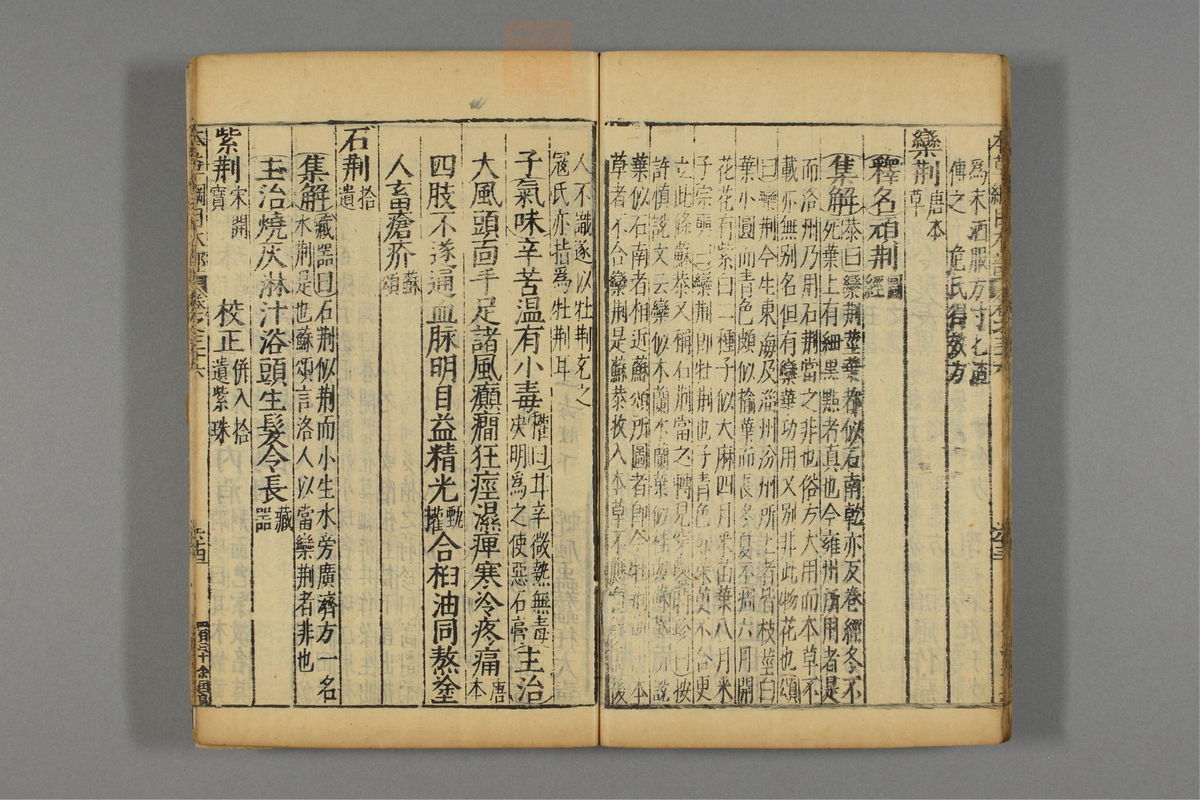 爲末酒服方寸匕
傅之 危氏得效方
欒荆唐本草
釋名頑荆圖經
集解恭曰欒荆莖葉都似石南乾亦反卷經冬不
死葉上有細黑點者真也今雍州所用者是
而洛州乃用石荆當之非也俗方大用而本草不
載亦無别名但有欒華功用又别非此物花也頌
曰欒荆今生東海及淄州汾州所上者皆枝莖白
葉小圓而青色頗似榆葉而長冬夏不枯六月開
花花有紫白二種子似大麻四月采苗葉八月采
子宗奭曰欒荆即牡荆也子青色如味更不合更
立此條蘇恭又稱石荆當之轉見時珍曰按
許慎說文云欒似木蘭木蘭葉似桂
葉似石南者相近蘇頌所圖者即
草者不合欒荆是蘇恭收入本草不應
人不識遂以牡荆充之
寇氏亦指爲牡荆耳
子氣味辛苦温有小毒權曰甘辛微熱無毒決明爲之使惡石膏主治
大風頭面手足諸風癲癎狂痙濕痺寒冷疼痛唐本
四肢不遂通血脉明目益精光甄權合桕油同熬塗
人畜瘡疥蘇頌
石荆拾遺
集解藏器曰石荆似荆而小生水旁廣濟方一名
水荆是也蘇頌言洛人以當欒荆者非也
主治燒灰淋汁浴頭生髮令長藏器
紫荆宋開寶 校正併入拾遺紫珠
本草綱目木部 卷之三十六